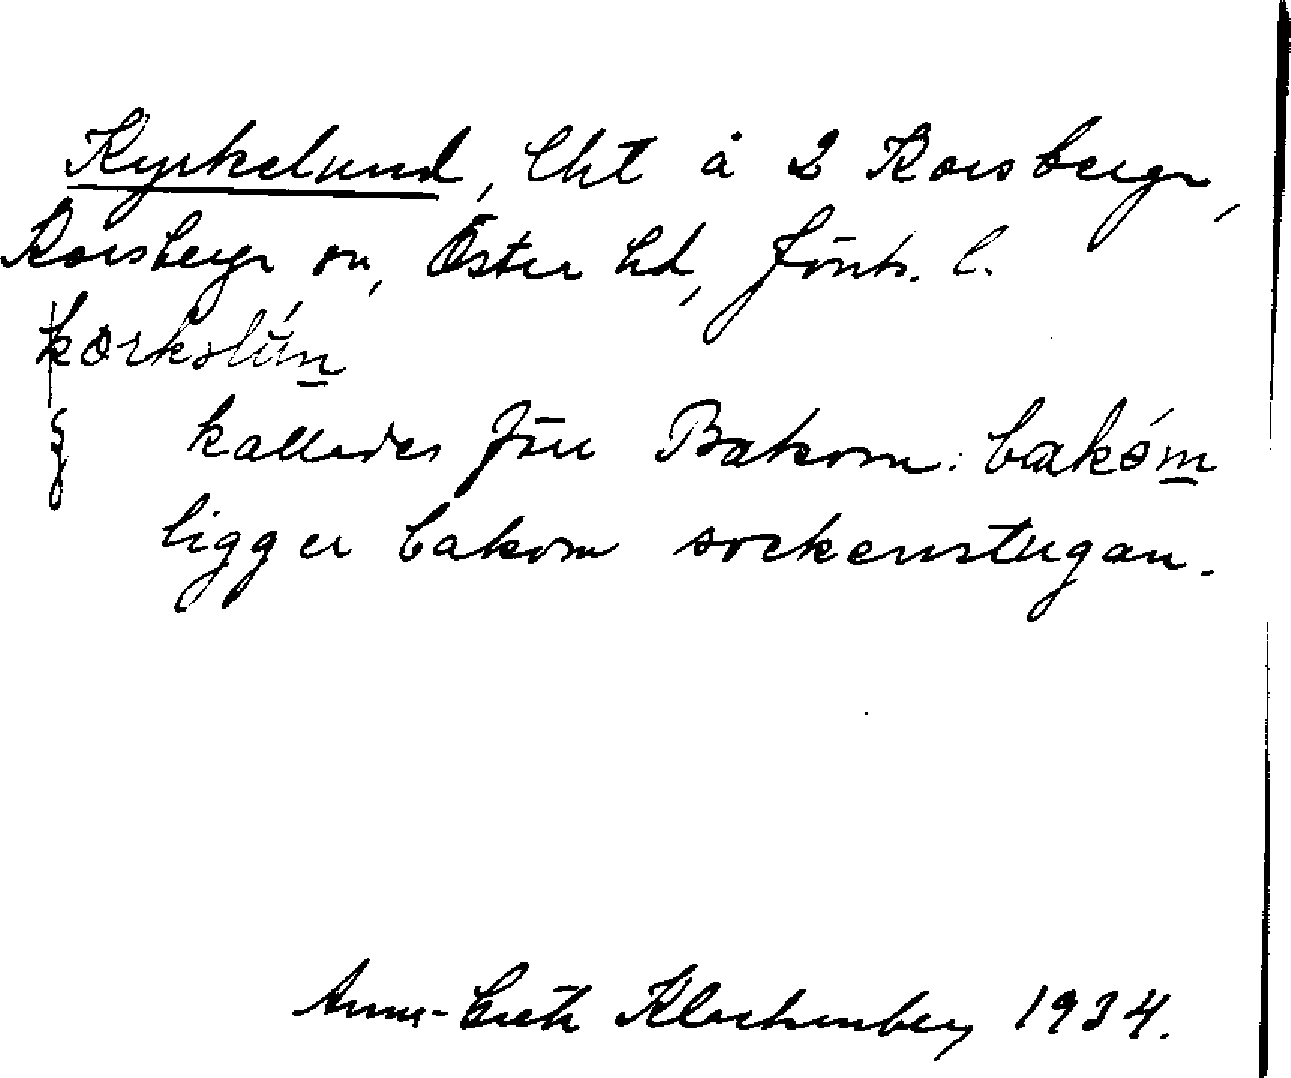 Kyrkelund, lht å 2 Korsberga,
Korsberga sn, Östra hd, Jönk. l.
kørkəlún
kallades förr Bakom: bakóm
ligger bakom sockenstugan.
Anna-Greta Klockenberg 1934.